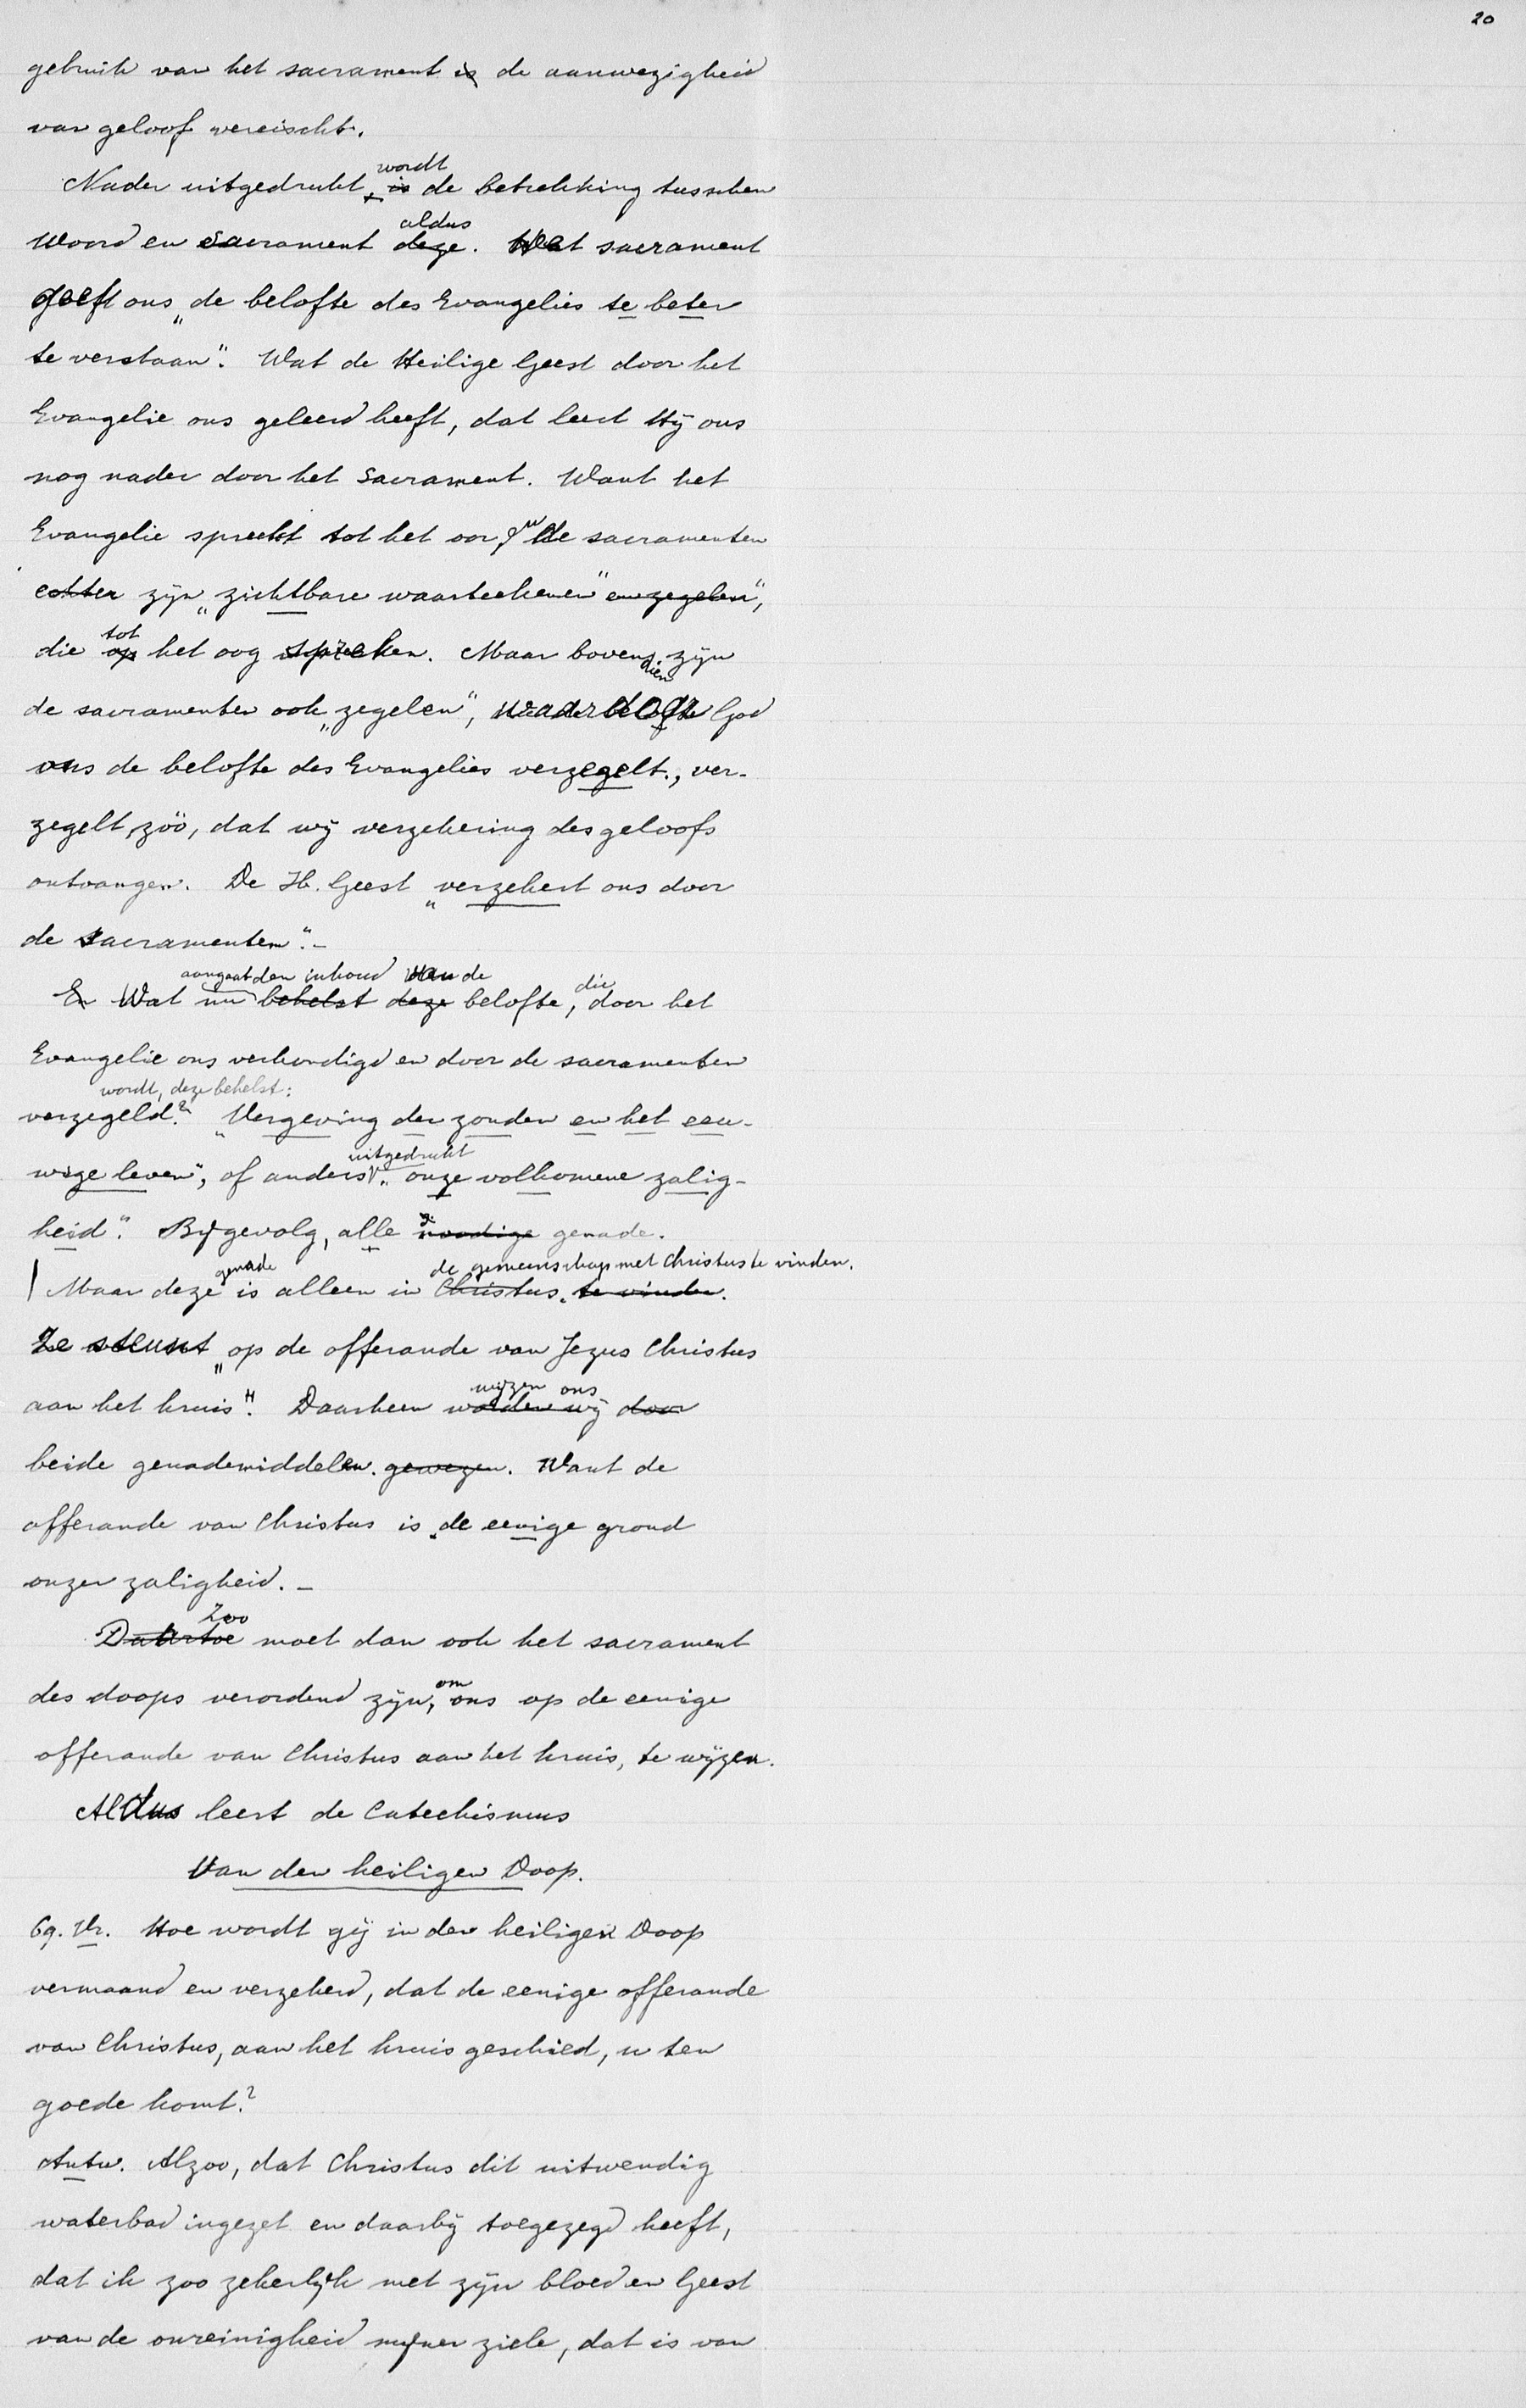 20
gebruik van het sacrament is de aanwezigheid
van geloof vereischt.
wordt
Nader uitgedrukt, is de betrekking tusschen
aldus
Woord en sacrament deze. Het sacrament
geeft ons „de belofte des Evangelies te beter
te verstaan". Wat de Heilige Geest door het
Evangelie ons geleerd heeft, dat leert Hij ons
nog nader door het sacrament. Want het
Evangelie spreekt tot het oor, De sacramenten
echter zijn „zichtbare waarteekenen" en zegelen",
tot
die op het oog spreken. Maar bovendien zijn
de sacramenten ook „zegelen", waardoor God
ons de belofte des Evangelies verzegelt, ver-
zegelt, zóó, dat wij verzekering des geloofs
ontvangen. De H. Geest „verzekert ons door
de sacramenten". –
aangaat den inhoud van de
die
En Wat nu behelst deze belofte, door het
Evangelie ons verkondigd en door de sacramenten
wordt, deze behelst:
verzegeld? „Vergeving der zonden en het eeu-
uitgedrukt
wige leven", of anders „onze volkomene zalig-
heid". Bijgevolg, alle noodige genade.
genade
de gemeenschap met Christus te vinden.
Maar deze is alleen in Christus te vinden.
Ze steunt „op de offerande van Jezus Christus
wijzen ons
aan het kruis". Daarheen worden wij door
beide genademiddelen. gewezen. Want de
offerande van Christus is de eenige grond
onzer zaligheid. –
Zoo
Daartoe moet dan ook het sacrament
om
des doops verordend zijn, ons op de eenige
offerande van Christus aan het kruis, te wijzen.
Aldus leert de Catechismus
Van den heiligen Doop.
69. Vr. Hoe wordt gij in den heiligen Doop
vermaand en verzekerd, dat de eenige offerande
van Christus, aan het kruis geschied, u ten
goede komt?
Antw. Alzoo, dat Christus dit uitwendig
waterbad ingezet en daarbij toegezegd heeft,
dat ik zoo zekerlijk met zijn bloed en Geest
van de onreinigheid mijner ziele, dat is van